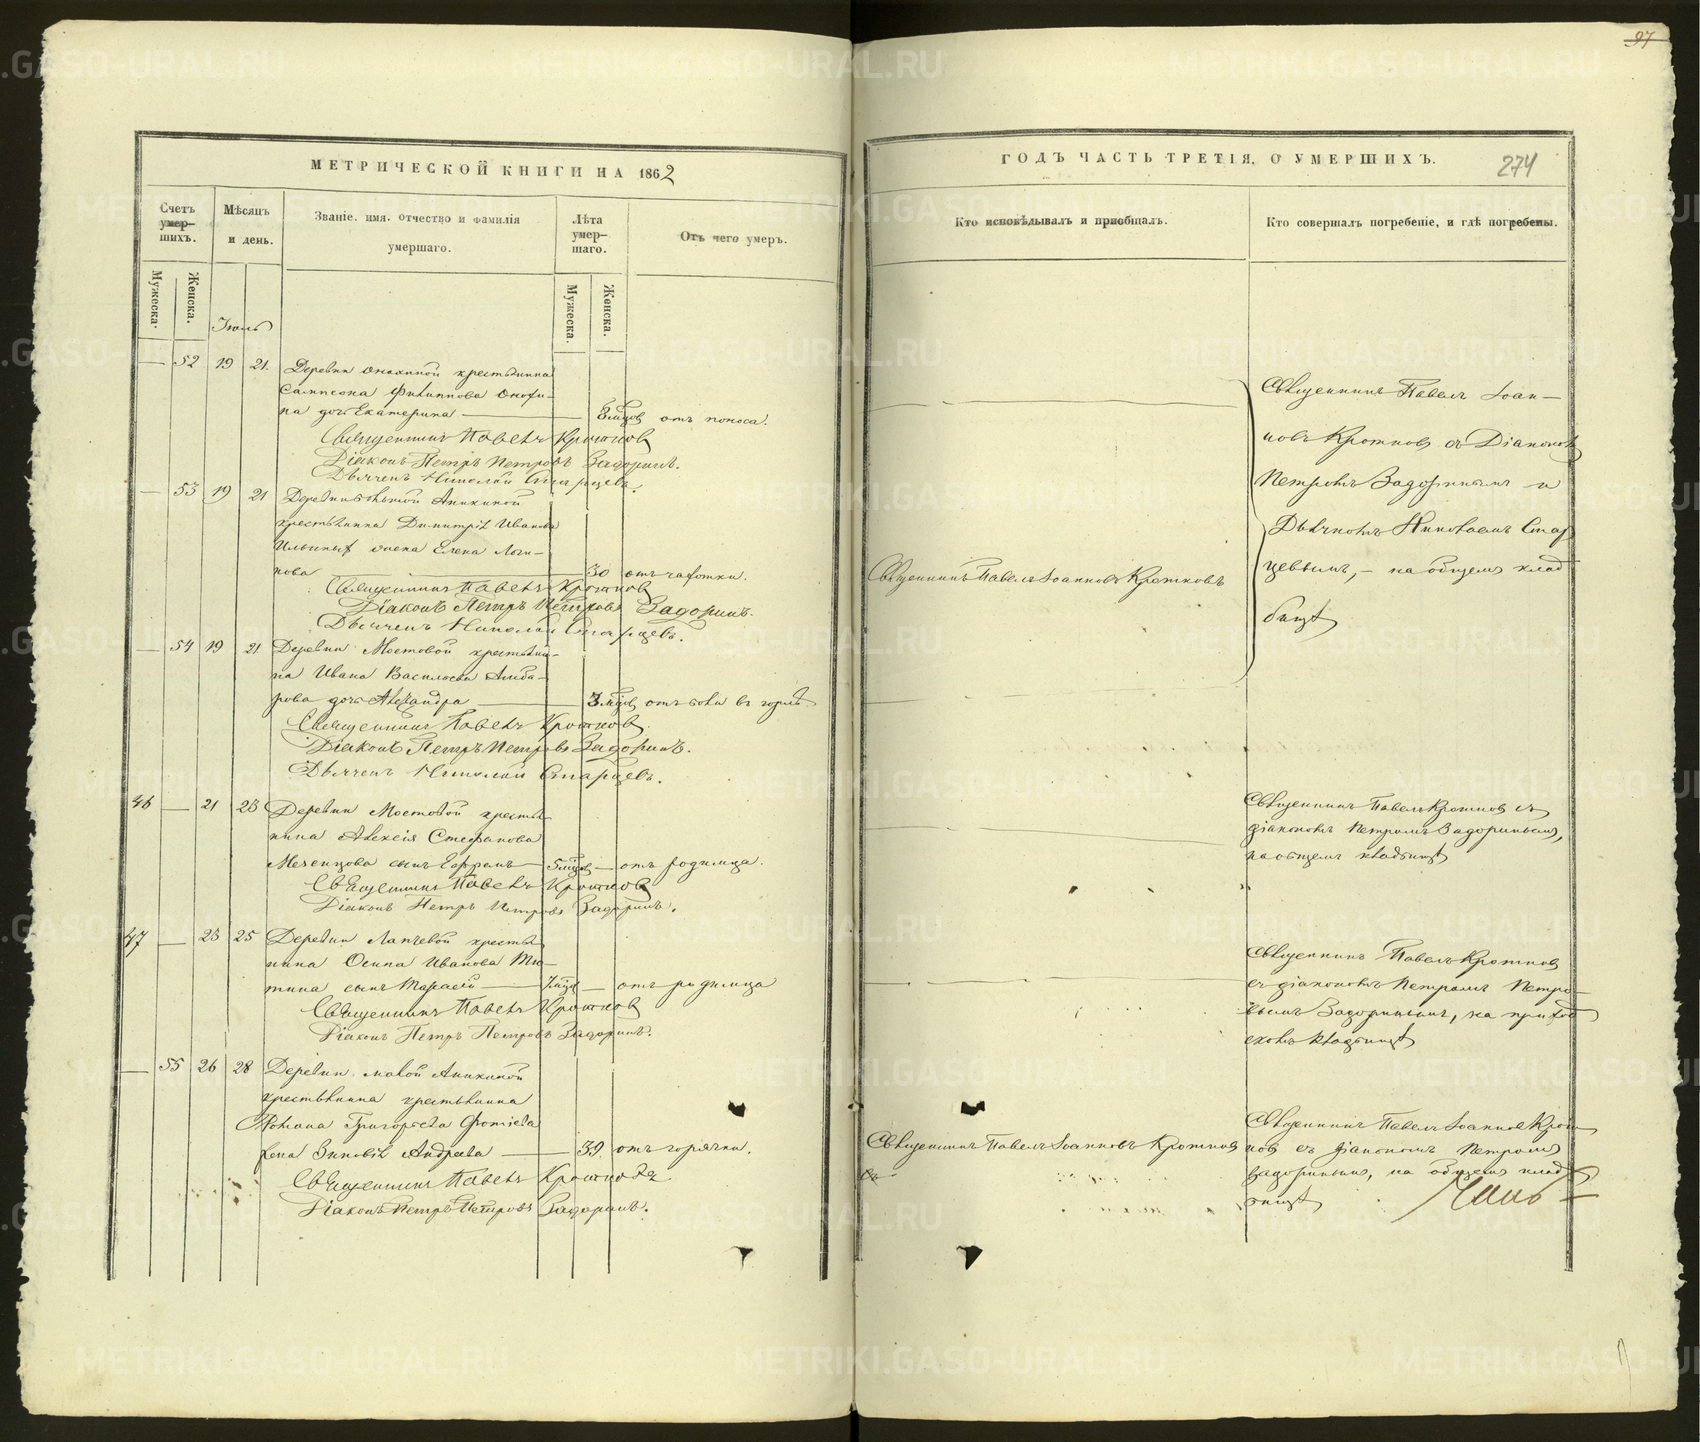 97
МЕТРИЧЕСКОЙ КНИГИ НА 1862
ГОДЪ ЧАСТЬ ТРЕТІЯ, О УМЕРШИХЪ.
274
Счетъ умер-шихъ.
Мѣсяцъ и день.
Званіе, имя, отчество и фамилія умершаго.
Лѣта умер-шаго.
Отъ чего умеръ.
Кто исповѣдывалъ и пріобщалъ.
Кто совершалъ погребеніе, и гдѣ погребены.
Мужеска.
Женска.
Мужеска.
Женска.
Іюль
— 52 19 21. Деревни крестьянина
Сампсона Филиппова Онохи-
на дочь Екатерина — 8 мцов отъ поноса.
Священникъ Павелъ Кротковъ
Діаконъ Петръ Петровъ Задоринъ.
Дьячекъ Николай Старцевъ.
— 53 19 21 Деревни большой Аникиной
крестьянина Димитрія Иванова
жена Елена Логи-
нова — 30 отъ чахотки.
Священникъ Павелъ Кротковъ
Діаконъ Петръ Петровъ Задоринъ.
Дьячекъ Николай Старцевъ.
— 54 19 21 Деревни Мостовой крестьяни-
на Ивана Васильева
дочь Александра — 3 мцов отъ боли въ горлѣ
Священникъ Павелъ Кротковъ
Діаконъ Петръ Петровъ Задоринъ.
Дьячекъ Николай Старцевъ.
46 — 21 23 Деревни Мостовой крестья-
нина Алексія Стефанова
Мезенцова сынъ Ефремъ — 5 мцов — отъ родимца.
Священникъ Павелъ Кротковъ
Діаконъ Петръ Петровъ Задоринъ.
47 — 23 25 Деревни Лапчевой крестья-
нина Осипа Иванова
сынъ Тарасій — отъ родимца
Священникъ Павелъ Кротковъ
Діаконъ Петръ Петровъ Задоринъ.
— 55 26 28 Деревни малой Аникиной
крестьянина крестьянина
Романа Григорьева Фотіева
жена Зиновія Андреева — 39 отъ горячки.
Священникъ Павелъ Кротковъ
Діаконъ Петръ Петровъ Задоринъ.
Священникъ Павелъ Іоан-
новъ Кротковъ съ Діакономъ
Петромъ Задоринымъ и
Дьячкомъ Николаемъ Стар-
цевымъ, — на общемъ клад-
бищѣ
Священникъ Павелъ Іоанновъ Кротковъ
Священникъ Павелъ Кротковъ съ
діакономъ Петромъ Задоринымъ,
на общемъ кладбищѣ
Священникъ Павелъ Кротковъ
съ діакономъ Петромъ Петро-
вымъ Задоринымъ, на приход-
скомъ кладбищѣ
Священникъ Павелъ Іоанновъ Кротковъ
Священникъ Павелъ Іоанновъ Крот-
ковъ съ діакономъ Петромъ
Задоринымъ, на общемъ клад-
бищѣ
METRIKI.GASO-URAL.RU